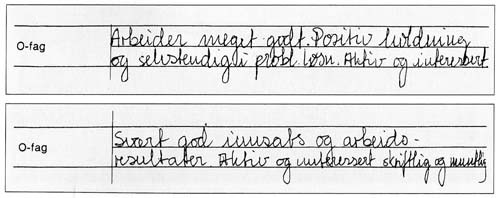 O-fag
Arbeider meget godt. Positiv holdning
og selvstendig i probl.løsn. Aktiv og interessert
O-fag
Svært god innsats og arbeids-
resultater. Aktiv og interessert skriftlig og muntlig